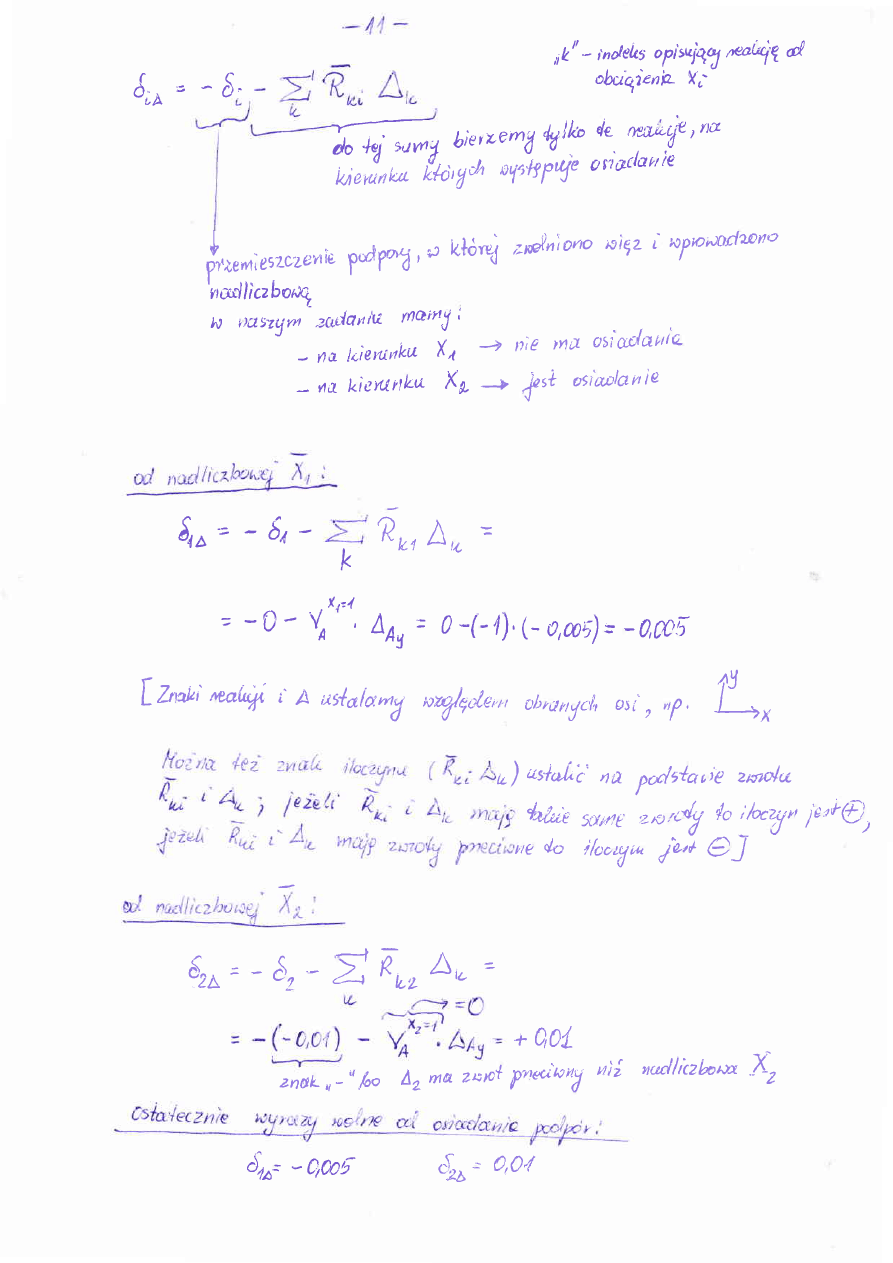 - 11 -
„k” - indeks opisujący reakcję od
obciążenia Xi
δiΔ = - δi - Σk R̄ki Δk
do tej sumy bierzemy tylko te reakcje, na
kierunku których występuje osiadanie
przemieszczenie podpory, w której zwolniono więz i wprowadzono
nadliczbową
w naszym zadaniu mamy:
- na kierunku X1 → nie ma osiadania
- na kierunku X2 → jest osiadanie
od nadliczbowej X̄1:
δ1Δ = - δ1 - Σk R̄k1 Δk =
= - 0 - VA^X1=1 · ΔAy = 0 -(-1)·(-0,005) = -0,005
[Znaki reakcji i Δ ustalamy względem obranych osi, np. y x
Można też znak iloczynu (R̄ki Δk) ustalić na podstawie zwrotu
R̄ki i Δk ; jeżeli R̄ki i Δk mają takie same zwroty to iloczyn jest ⊕,
jeżeli R̄ki i Δk mają zwroty przeciwne to iloczyn jest ⊖]
od nadliczbowej X̄2:
δ2Δ = - δ2 - Σk R̄k2 Δk =
= -(-0,01) - VA^X2=1 · ΔAy = + 0,01
=0
znak „-” bo Δ2 ma zwrot przeciwny niż nadliczbowa X2
Ostatecznie wyrazy wolne od osiadania podpór:
δ1Δ = -0,005 δ2Δ = 0,01